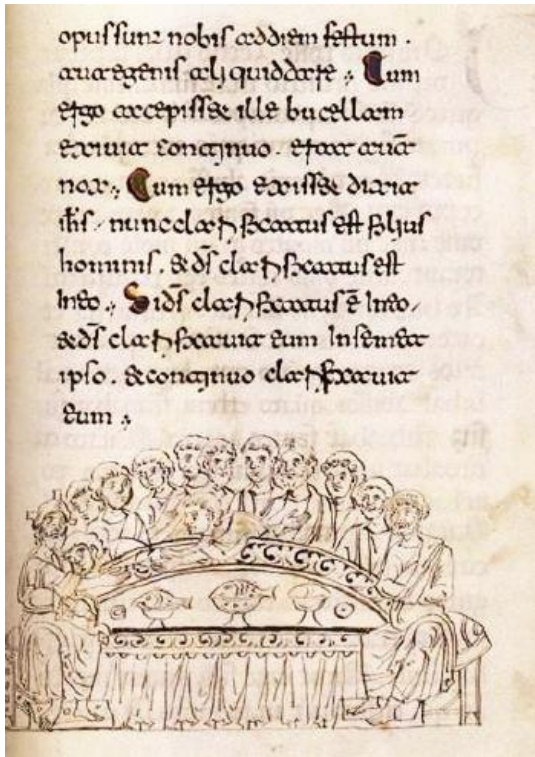 opus sunt nobis ad diem festum .
aut egenis aliquid daret . Cum
ergo accepisset ille bucellam
exivit continuo . erat autē
nox . Cum ergo exisset dixit
ih̄s . nunc clarificatus est filius
hominis . & d̄s clarificatus est
in eo . Si d̄s clarificatus ē in eo .
& d̄s clarificavit eum in semet
ipso . & continuo clarificavit
eum .